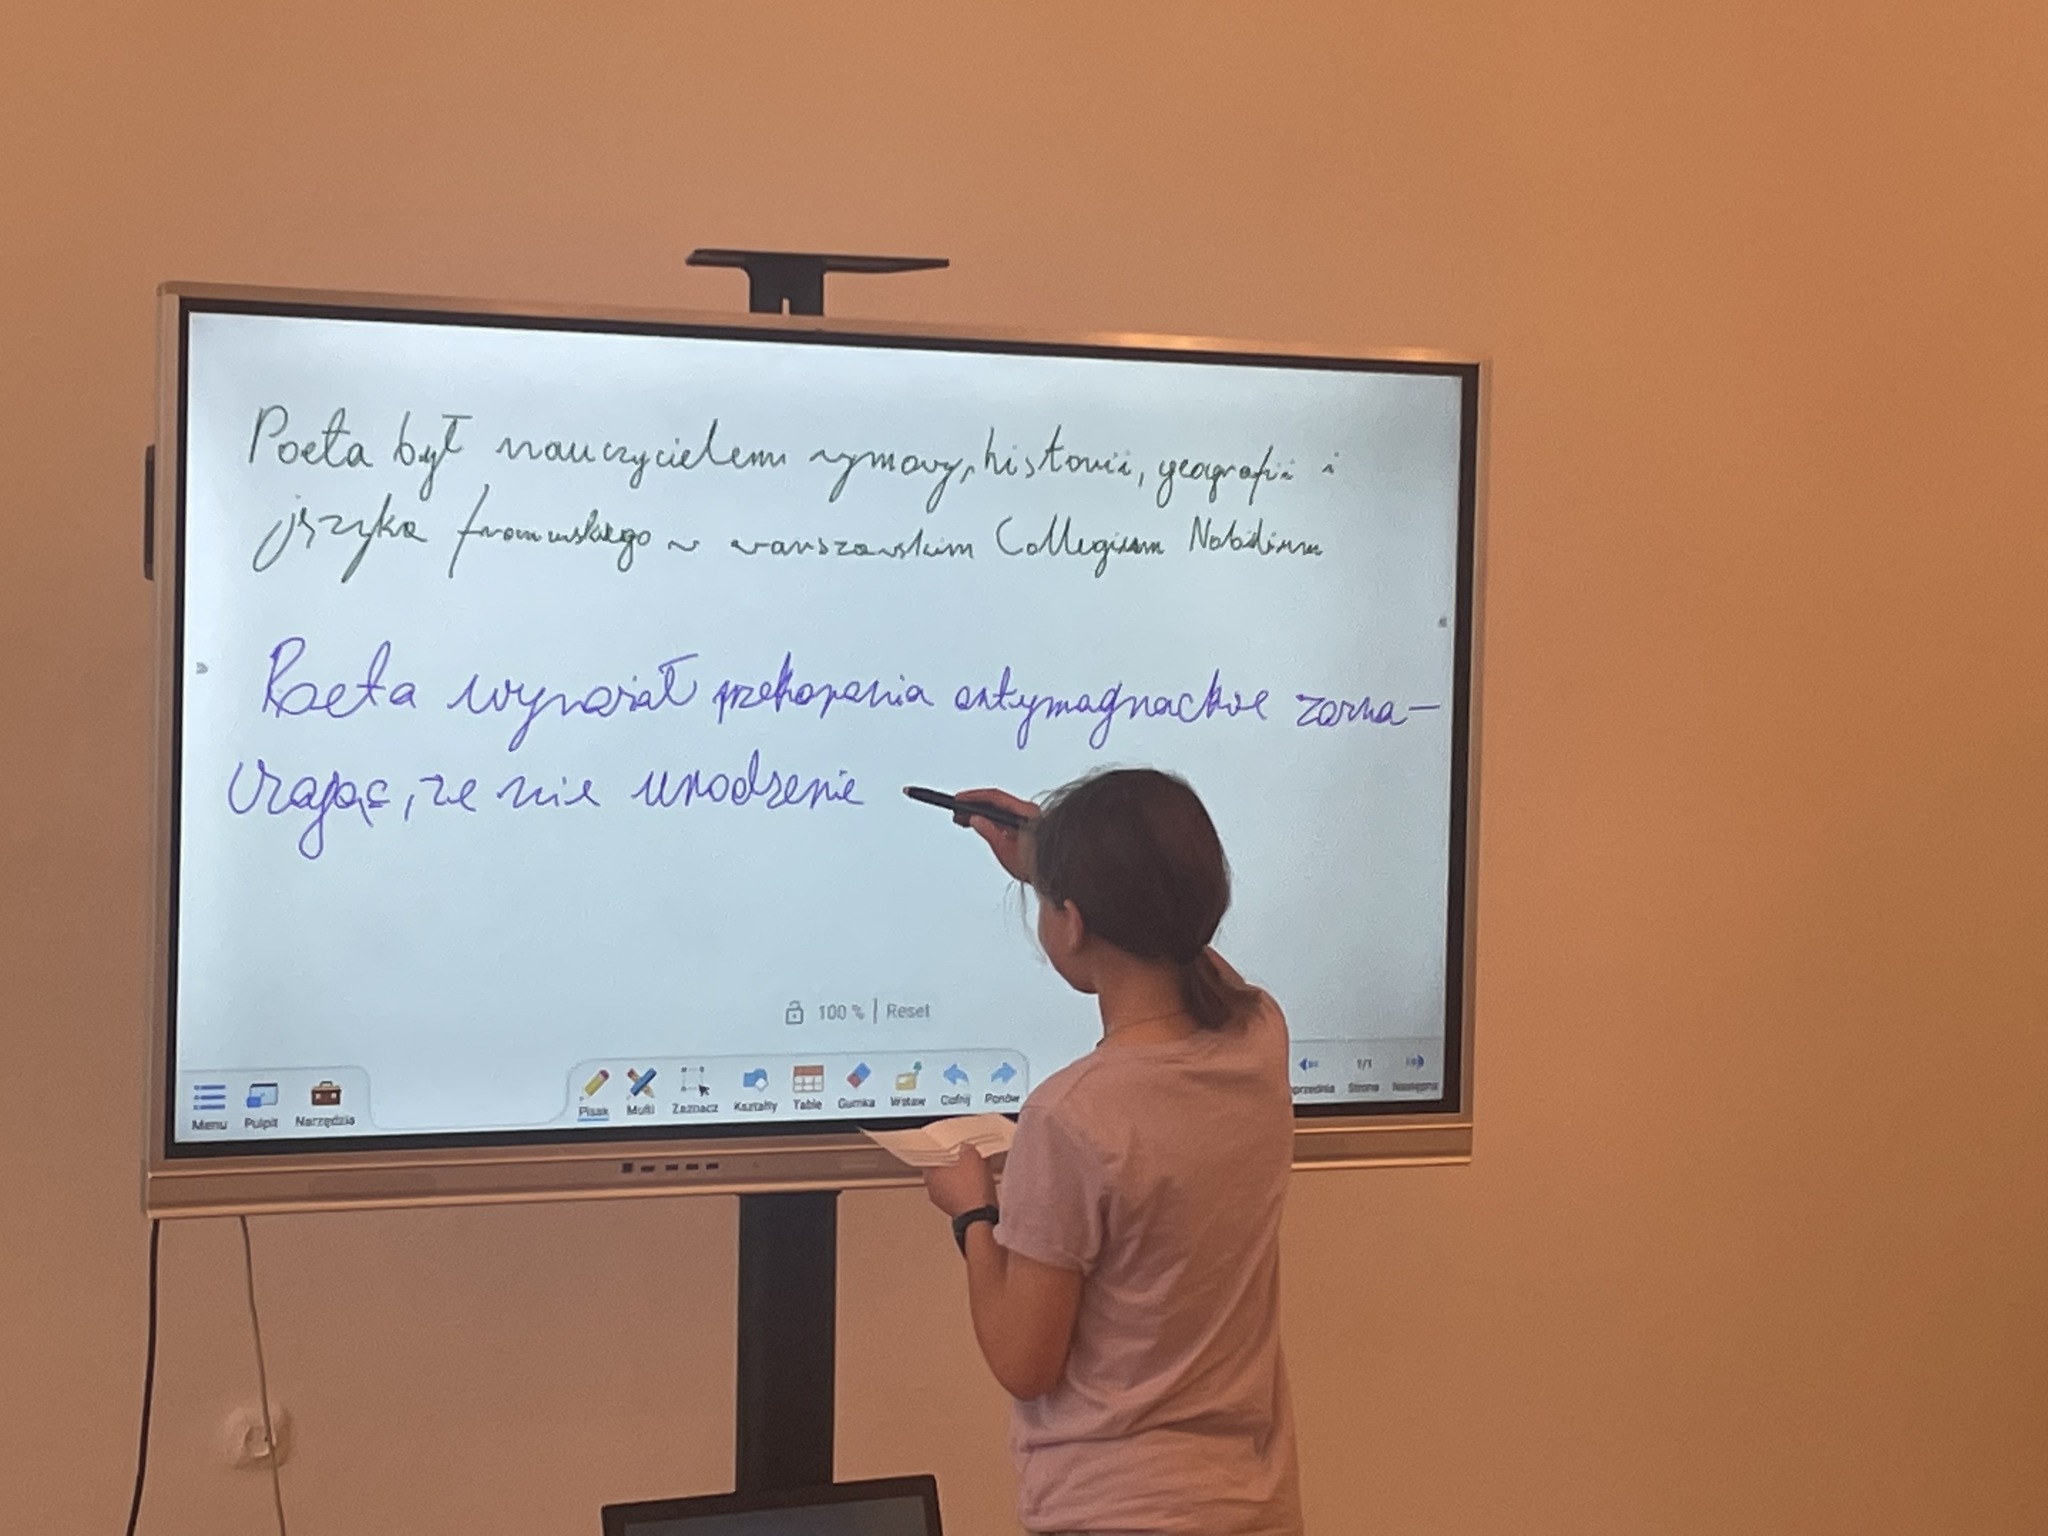 Poeta był nauczycielem wymowy, historii, geografii i
języka francuskiego w warszawskim Collegium Nobilium
Poeta wyrażał przekonania antymagnackie zazna-
czając, że nie urodzenie
100 % | Reset
Menu Pulpit Narzędzia Pisak Multi Zaznacz Kształty Table Gumka Wstaw Cofnij Ponów oprzednia 1/1 Strona Następna